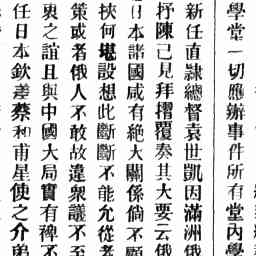 學堂一切應辦事件所有堂內學
新任直隷總督袁世凱因滿洲俄
抒陳己見拜摺覆奏其大要云俄
日本諸國咸有絶大關係倘不顧
挾何堪設想此斷斷不能允從者
策或者俄人不敢故違衆議不至
與之誼且與中國大局實有裨不
任日本欽差蔡和甫星使之介弟